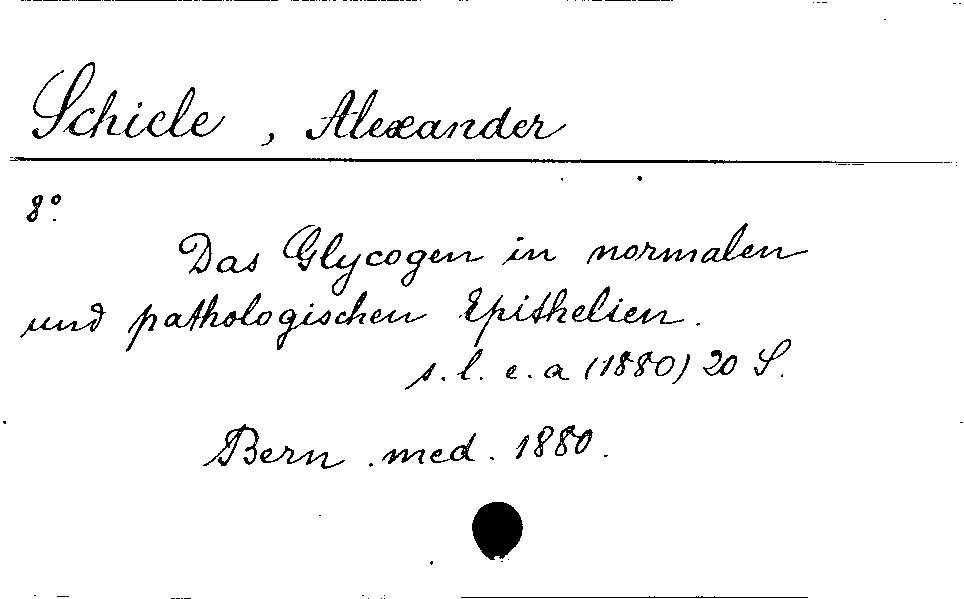 Schiele, Alexander
8°.
Das Glycogen in normalen
und pathologischen Epithelien.
s. l. e. a (1880) 20 S.
Bern. med. 1880.